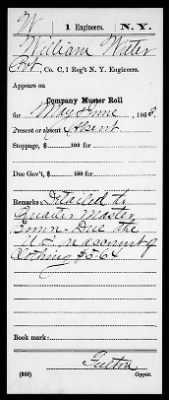 W | 1 Engineers. | N.Y.
William Witter
Pvt, Co. C, 1 Reg't N. Y. Engineers.
Appears on
Company Muster Roll
for May & June, 1863.
Present or absent Absent
Stoppage, $ 100 for
Due Gov't, $ 100 for
Remarks: Detailed to
Quarter Master
Comn. Due the
U.S. on account of
clothing $5.64
Book mark:
(858) Copyist.